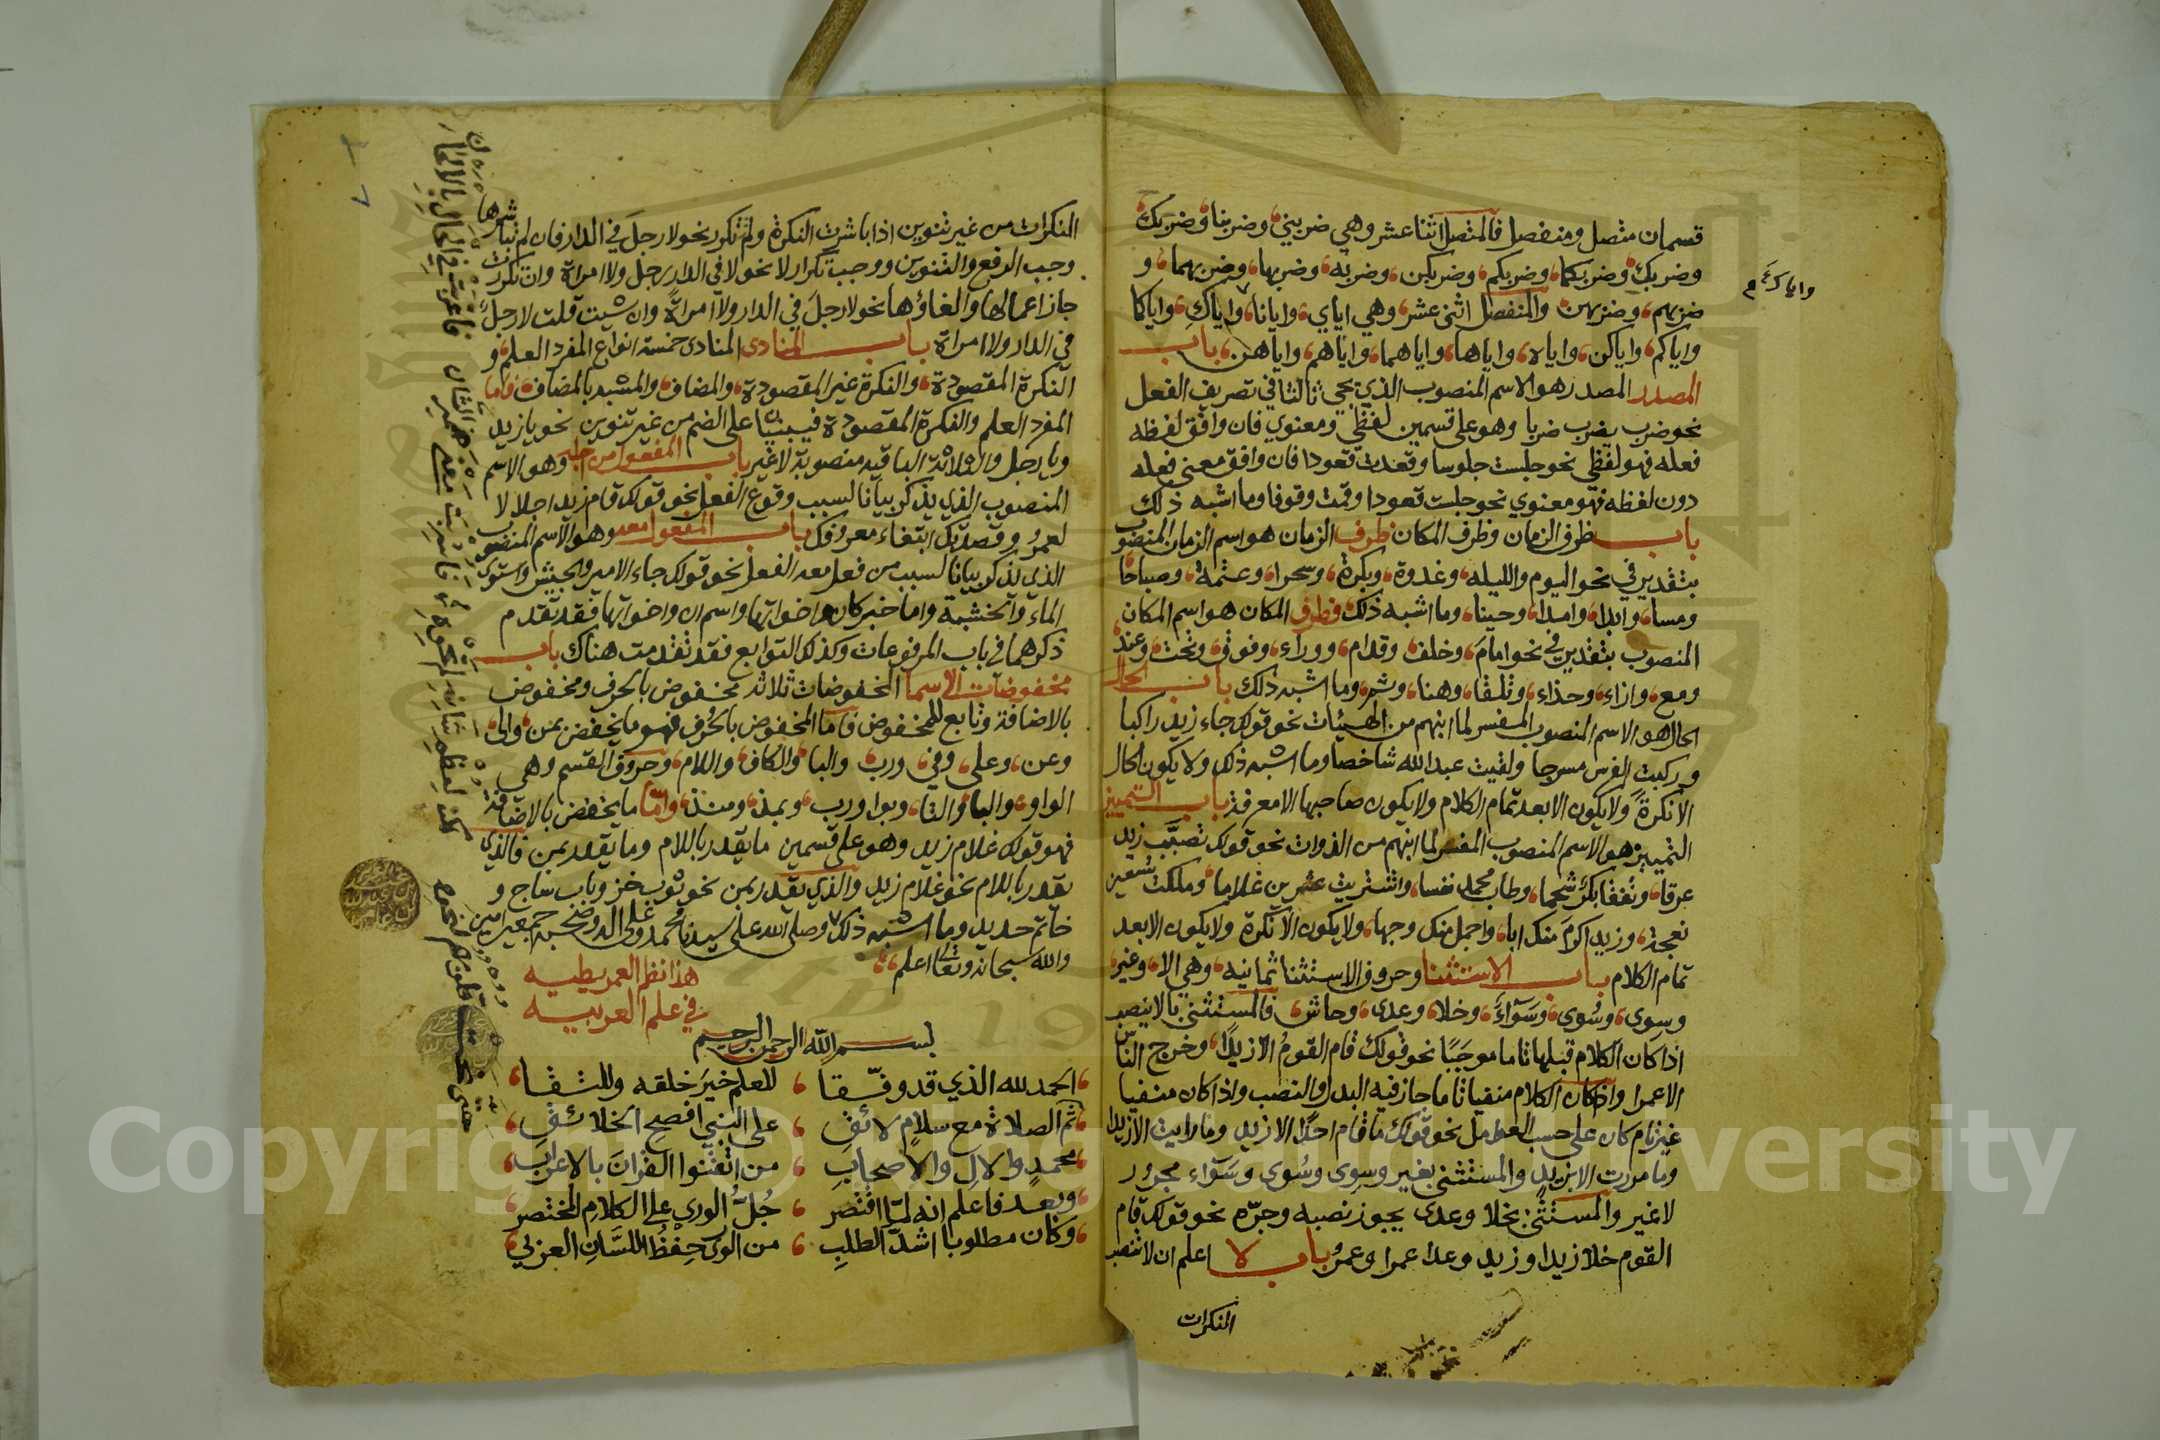 قسمان متصل ومنفصل فالمتصل اثنا عشر وهي ضربني وضربنا وضربك
وضربك وضربكما وضربكم وضربكن وضربه وضربها وضربهما و
ضربهم وضربهن والمنفصل اثنى عشر وهي اياي وايانا واياك واياكما
واياكم واياكن واياه واياها واياهما واياهم واياهن باب
المصدر المصدر هو الاسم المنصوب الذي يجي ثالثا في تصريف الفعل
نحو ضرب يضرب ضربا وهو على قسمين لفظي ومعنوي فان وافق لفظه
فعله فهو لفظي نحو جلست جلوسا وقعدت قعودا فان وافق معنى فعله
دون لفظه فهو معنوي نحو جلست قعودا وقمت وقوفا وما اشبه ذلك
باب ظرف الزمان وظرف المكان ظرف الزمان هو اسم الزمان المنصوب
بتقدير في نحو اليوم والليله وغدوة وبكرة وسحرا وعتمة وصباحا
ومسا وابدا وامدا وحينا وما اشبه ذلك فظرف المكان هو اسم المكان
المنصوب بتقدير في نحو امام وخلف وقدام ووراء وفوق وتحت وعند
ومع وازاء وحذاء وتلقا وهنا وثم وما اشبه ذلك باب الحال
الحال هو الاسم المنصوب المفسر لما انبهم من الهيئات نحو قولك جاء زيد راكبا
وركبت الفرس مسرجا ولقيت عبد الله شاخصا وما اشبه ذلك ولا يكون الحال
الا نكرة ولا يكون الا بعد تمام الكلام ولا يكون صاحبها الا معرفة باب التمييز
التمييز هو الاسم المنصوب المفسر لما انبهم من الذوات نحو قولك تصبب زيد
عرقا وتفقا بكر شحما وطاب محمد نفسا واشتريت عشرين غلاما وملكت تسعين
نعجة وزيد اكرم منك ابا واجمل منك وجها ولا يكون الا نكرة ولا يكون الا بعد
تمام الكلام باب الاستثنا وحروف الاستثنا ثمانيه وهي الا وغير
وسوى وسوى وسواء وخلا وعدى وحاش فالمستثنى بالا ينصب
اذا كان الكلام قبلها تاما موجبا نحو قولك قام القوم الا زيدا وخرج الناس
الا عمرا واذا كان الكلام منفيا تاما جاز فيه البدل والنصب واذا كان منفيا
غير تام كان على حسب العوامل نحو قولك ما قام احدا الا زيد وما رايت الا زيدا
وما مررت الا بزيد والمستثنى بغير وسوى وسوى وسواء مجرور
لا غير والمستثنى بخلا وعدى يجوز نصبه وجره نحو قولك قام
القوم خلا زيدا وزيد وعدا عمرا وعمرو باب لا اعلم ان لا تنصب
النكرات
واياك م
النكرات من غير تنوين اذا باشرت النكرة ولم تتكرر نحو لا رجل في الدار فان لم تباشرها
وجب الرفع والتنوين ووجب تكرار لا نحو لا في الدار رجل ولا امراة وان تكررت
جاز اعمالها والغاؤها نحو لا رجل في الدار ولا امراة وان شيت قلت لا رجل
في الدار ولا امراة باب المنادى المنادى خمسة انواع المفرد العلم و
النكرة المقصودة والنكرة غير المقصودة والمضاف والمشبه بالمضاف فاما
المفرد العلم والنكرة المقصودة فيبنيا على الضم من غير تنوين نحو يا زيد
ويا رجل والثلاثة الباقيه منصوبة لا غير باب المفعول من اجله وهو الاسم
المنصوب الذي يذكر بيانا لسبب وقوع الفعل نحو قولك قام زيد اجلالا
لعمرو وقصدتك ابتغاء معروفك باب المفعول معه وهو الاسم المنصوب
الذي يذكر بيانا لسبب من فعل معه الفعل نحو قولك جاء الامير والجيش واستوى
الماء والخشبة واما خبر كان واخواتها واسم ان واخواتها فقد تقدم
ذكرهما في باب المرفوعات وكذلك التوابع فقد تقدمت هناك باب
مخفوضات الاسما المخفوضات ثلاثة مخفوض بالحرف ومخفوض
بالاضافة وتابع للمخفوض فاما المخفوض بالحرف فهو ما يخفض بمن والى
وعن وعلى وفي ورب والبا والكاف واللام وحروف القسم وهي
الواو والبا والتا وبواو رب وبمذ ومنذ واما ما يخفض بالاضافة
فهو قولك غلام زيد وهو على قسمين ما يقدر باللام وما يقدر بمن فالذي
يقدر باللام نحو غلام زيد والذي يقدر بمن نحو ثوب خز وباب ساج و
خاتم حديد وما اشبه ذلك وصلى الله على سيدنا محمد وعلى اله وصحبه جمعين امين
والله سبحانه وتعالى اعلم
هذا نظم العمريطيه
في علم العربيه
بسم الله الرحمن الرحيم
الحمد لله الذي قد وفقا للعلم خير خلقه وللتقا
ثم الصلاة مع سلام لائق على النبي افصح الخلائق
محمد والال والاصحاب من اتقنوا القران بالاعراب
وبعد فاعلم انه لما اقتصر جل الورى على الكلام المختصر
وكان مطلوبا اشد الطلب من الورى حفظ اللسان العربي
حتى نحت قلوبهم لنحوه
Copyright © King Saud University